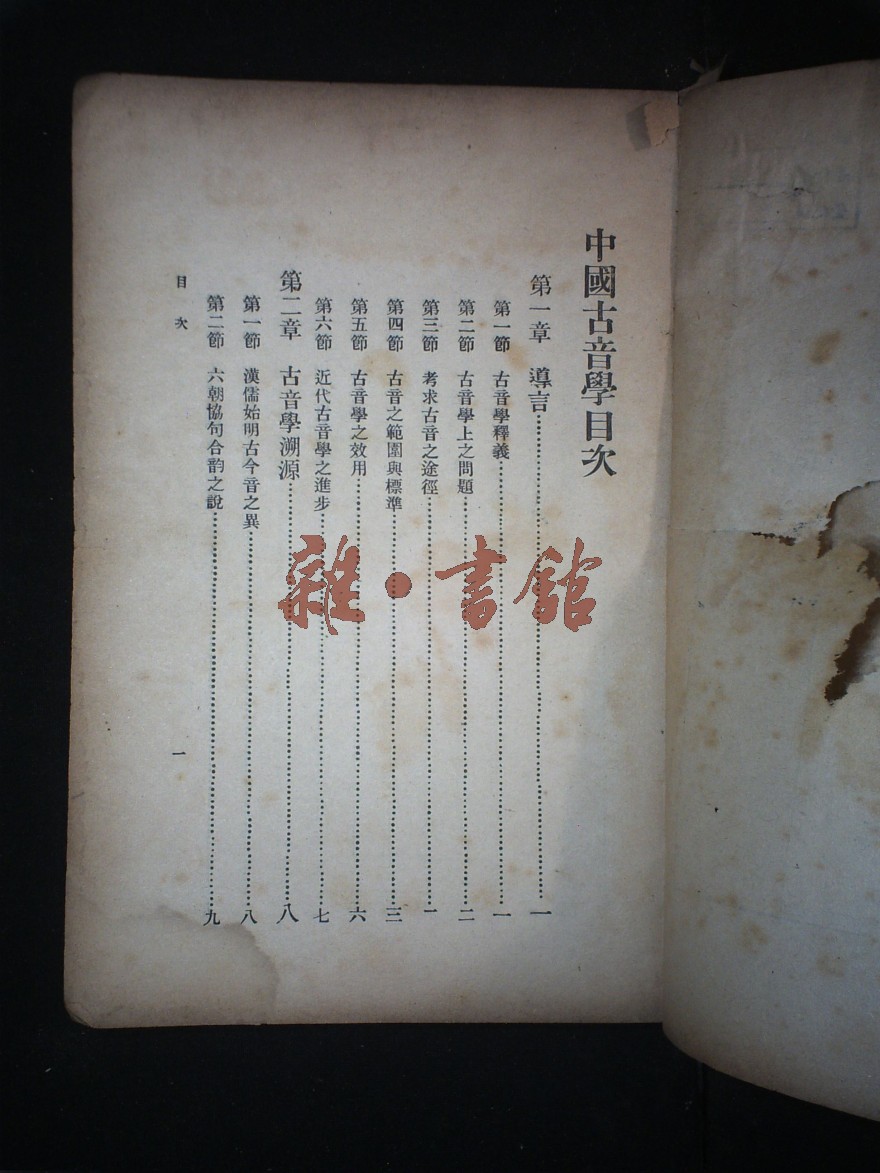 中國古音學目次
第一章　導言……一
第一節　古音學釋義……一
第二節　古音學上之問題……二
第三節　考求古音之途徑……二
第四節　古音之範圍與標準……三
第五節　古音學之效用……六
第六節　近代古音學之進步……七
第二章　古音學溯源……八
第一節　漢儒始明古今音之異……八
第二節　六朝協句合韵之說……九
目次
一
雜·書館